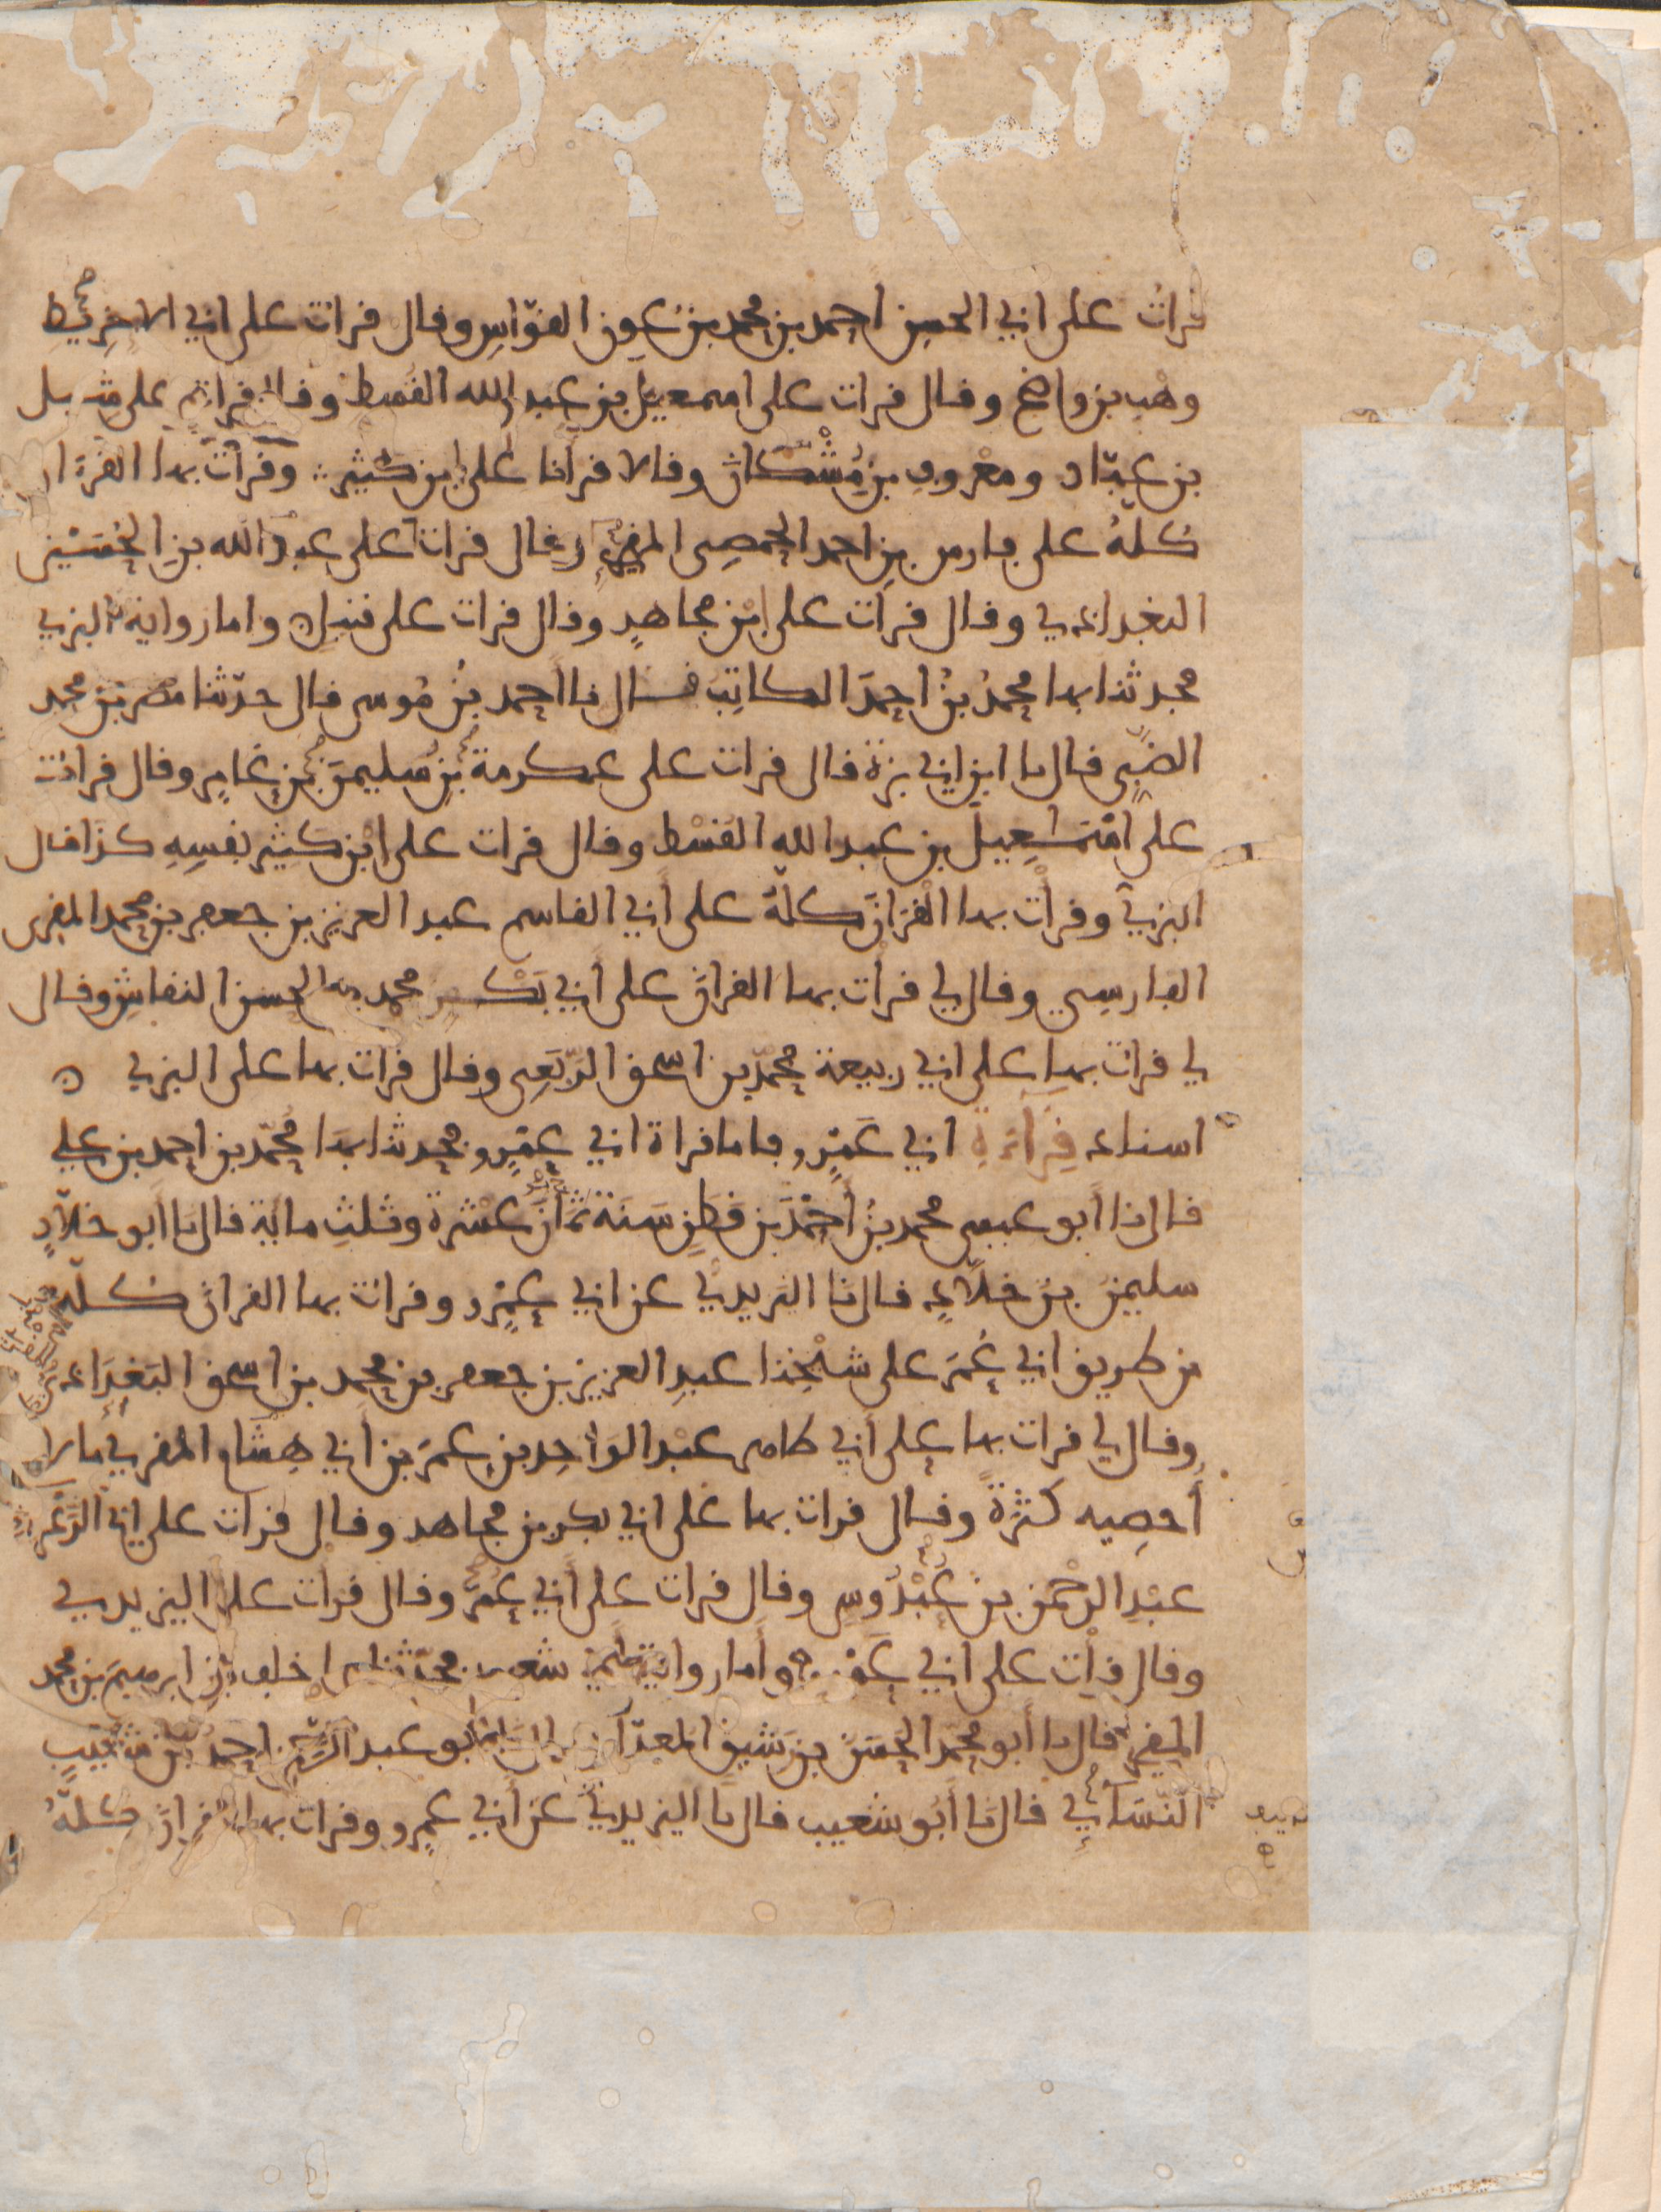 قرات على ابي الحسن احمد بن محمد بن عون القوّاس وقال قرات على ابي الاخريط
وهب بن واضح وقال قرات على اسمعيل بن عبد الله القسط وقال قرات على شبل
بن عبّاد ومعروف بن مُشْكان وقالا قرأنا على ابن كثير وقرأت بها القرءان
كلّهُ على فارس بن احمد الحمصى المقرئ وقال قرات على عبد الله بن الحُسَيْن
البغدادي وقال قرأت على ابن مجاهدٍ وقال قرات على قنبل واما رواية البزي
فحدثنا بها محمدُ بنُ احمدَ الكاتِب قال نا احمد بنُ مُوسى قال حدّثنا مضر بن محمد
الضبّى قال نا ابن ابي بزة قال قرات على عكرمة بن سُليمنَ بن عامِرٍ وقال قرات
على اسْمَعِيلَ بن عبد الله القسْط وقال قرات على ابْن كثير نفسِهِ كذا قال
البزي وقرأْت بها القرْانَ كلّهُ على أبي القاسم عبد العزيز بن جعفر بن محمد المقرى
الفارسِي وقال لي قرأت بها القران على أبي بَكْر محمد بن الحسن النقاشِ وقال
لي قرات بها على ابي ربيعة محمّد بن اسحق الرّبَعِى وقال قرات بها على البزي
اسناد قِرَآءَةِ ابي عَمْرٍو فاما قراة ابي عمْرٍو فحدثنا بها مُحمّد بن احمد بن علي
قال نا أبو عيسى محمد بنُ أحْمَدَ بن قطنٍ سَنَة ثمَانَ عشْرة وثلثِ ماية قال نا أبو خلاّدٍ
سليمنُ بنُ خلاّدٍ قال نا اليزيديُّ عن ابي عمْرٍو وقرات بها القران كُلّه
من طريق ابي عُمَرَ على شيْخِنا عبدِ العزيز بن جعفر بن محمد بن اسحق البَغدَادي
وقال لي قرات بها على أبي طاهر عبْد الوَاحِد بن عمَر بن أبي هِشام المقري ما لا
أُحصِيه كثرةً وقال قرات بها على ابي بكر بن مجاهد وقال قرات على ابي الزّعراء
عبْدِ الرحْمن بن عَبْدُوسٍ وقال قرات على أبي عُمَرَ وقال قرأت على اليزيدي
وقال قرأت على ابي عمْرو وأما رواية أبي شعيب فحدّثنا بها خلف بن ابرهيمَ بن محمد
المقرى قال نا أبو محمد الحَسَنُ بن رَشيق المعدّل قال نا أبو عبد الرحمن احمدُ بن شُعَيْبٍ
النّسَائي قال نا أبُو شعيب قال نا اليزيديُّ عن أبي عمرٍو وقرات بها القران كلّهُ